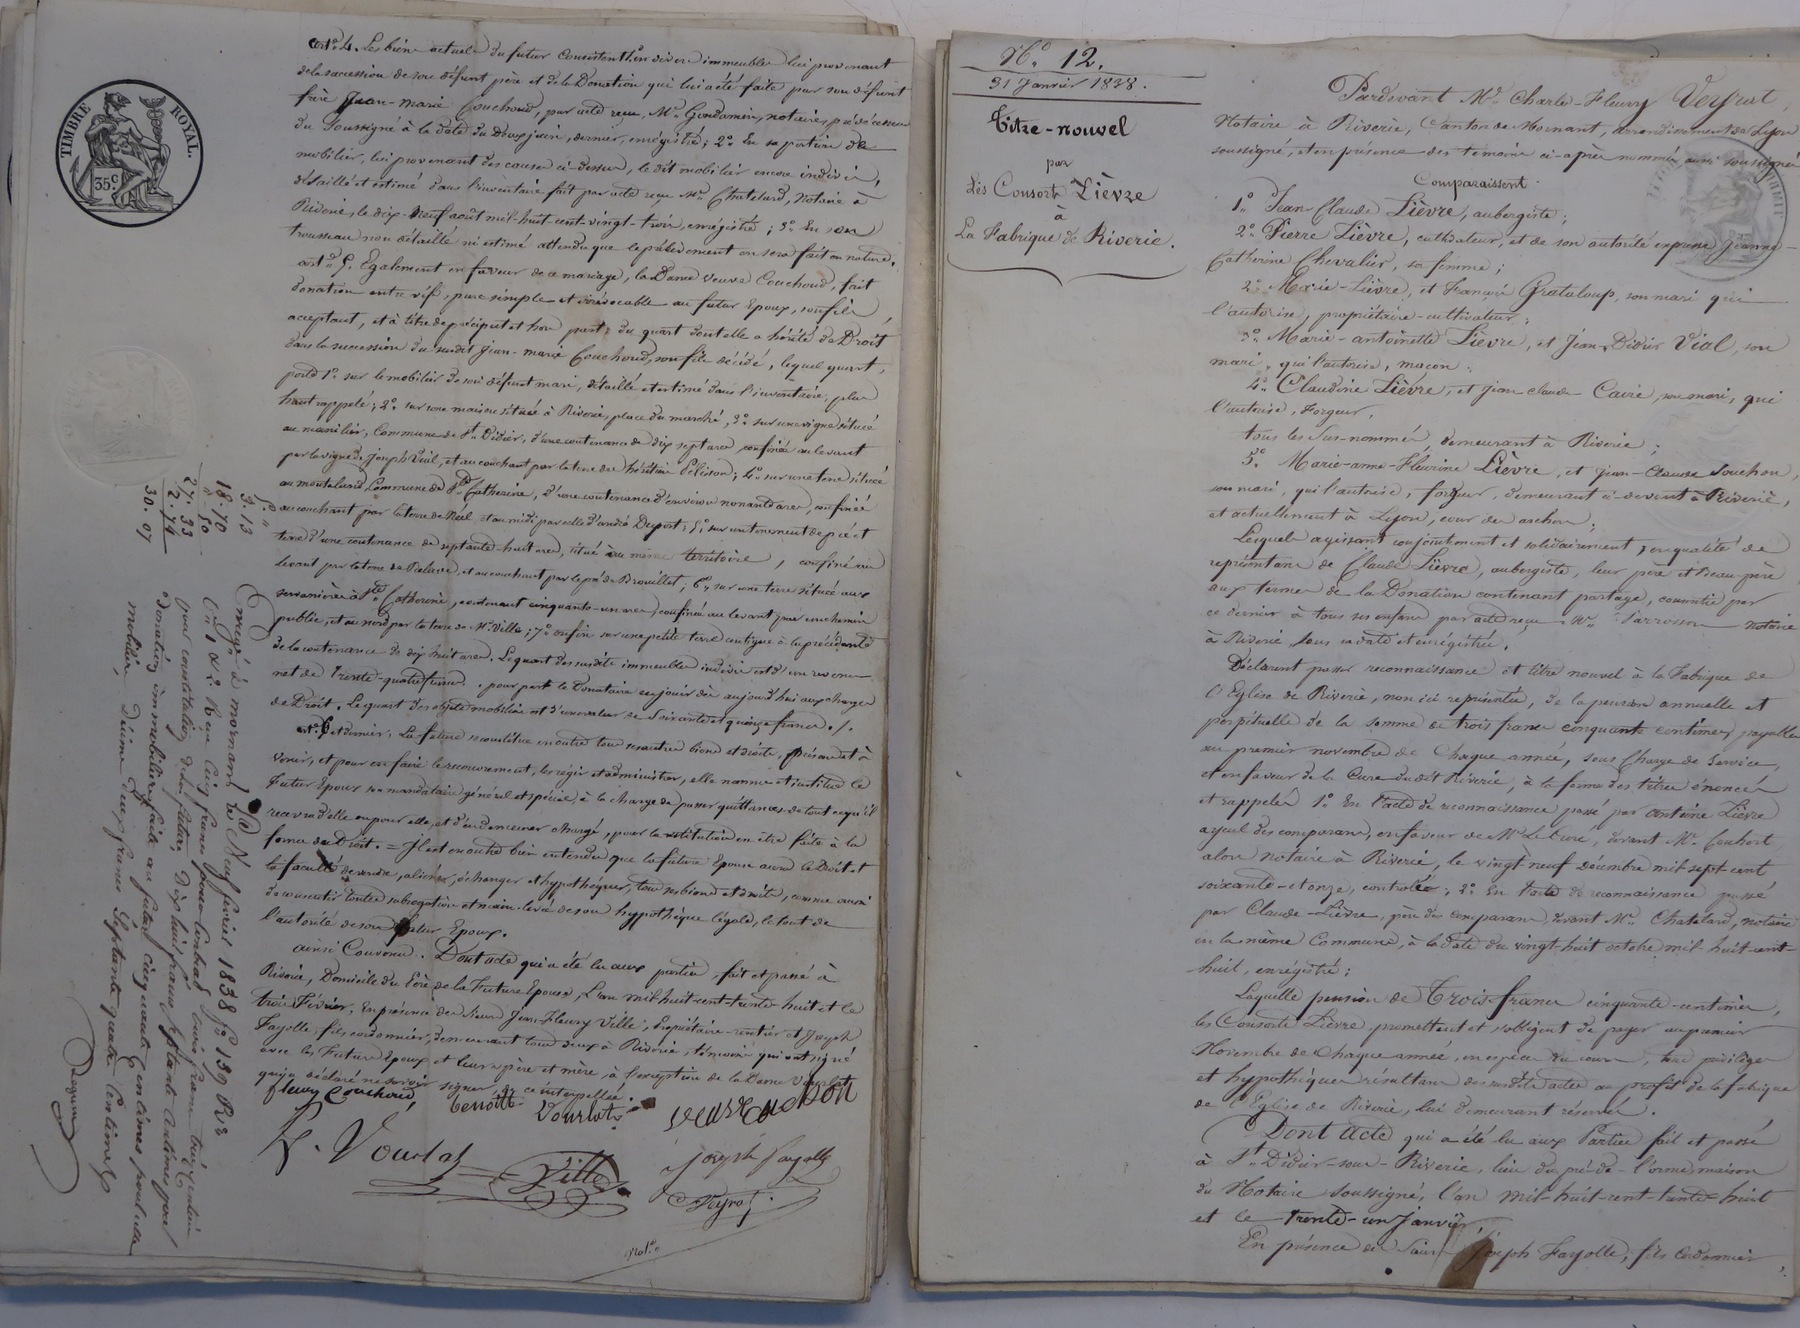 TIMBRE ROYAL.
35c.
art. 4. Les biens actuels du futur consistent 1o. en divers immeubles lui provenant
de la succession de son défunt père et de la Donation qui lui a été faite par son défunt
frère Jean-marie Couchoud, par acte reçu Me. Gondamin, notaire, prédécesseur
du soussigné à la date du Deux juin, dernier, enrégistré; 2o. En sa portion de
mobilier, lui provenant des causes ci-dessus, le dit mobilier encore indivis,
détaillé et estimé dans l'inventaire fait par acte reçu Me. Chatelard, Notaire à
Riverie, le dix-neuf août mil-huit-cent-vingt-trois, enrégistré; 3o. En son
trousseau non détaillé ni estimé attendu que le prélèvement en sera fait en nature.
art. 5. Egalement en faveur de ce mariage, la Dame veuve Couchoud, fait
donation entre vifs, pure simple et irrévocable au futur Epoux, son fils,
acceptant, et à titre de préciput et hors part, du quart dont elle a hérité de Droit
dans la succession du susdit Jean-marie Couchoud, son fils décédé, lequel quart,
porte 1o. sur le mobilier de son défunt mari, détaillé et estimé dans l'inventaire, plus
haut rappelé; 2o. sur une maison située à Riverie, place du marché, 3o. sur une vigne située
au manilier, Commune de St. Didier, d'une contenance de dix sept ares confinée au levant
par la vigne de Joseph Vial, et au couchant par la terre des héritiers Pelisson; 4o. sur une terre située
au monteland Commune de Ste. Catherine, d'une contenance d'environ nonante ares, confinée
au couchant par la terre de Réel et au midi par celle d'andré Duport; 5o. sur un tenement de pré et
terre d'une contenance de septante-huit ares, situé au même territoire, confiné au
levant par la terre de et au couchant par le pré de Brouillet, 6o. sur une terre située aux
à Ste. Catherine, contenant cinquante-un ares, confinée au levant par un chemin
public, et au nord par la terre de Mr. Ville; 7o. enfin sur une petite terre contigue à la précédente
de la contenance de dix huit ares. Le quart des susdits immeubles indivis est d'un revenu
net de trente-quatre francs. pour par le Donataire en jouir dès aujourd'hui aux charges
de Droit. Le quart des objets mobiliers est d'une valeur de Soixante et quinze francs ./.
art. 6 et dernier. La future se constitue en outre tous ses autres biens et droits, présents et à
venir, et pour en faire le recouvrement, les régir et administrer, elle nomme et institue le
Futur Epoux son mandataire général et spécial, à la charge de passer quittances de tout ce qu'il
recevra d'elle ou pour elle, et d'en demeurer chargé, pour la restitution en être faite à la
forme de Droit. = Il est en outre bien entendu que la future Epouse aura le Droit et
la faculté de vendre, aliéner, échanger et hypothéquer, tous ses biens et droits, comme aussi
de consentir toute subrogation et main-levée de son hypothèque légale, le tout de
l'autorité de son futur Epoux.
ainsi Convenu. Dont acte qui a été lu aux parties, fait et passé à
Riverie, Domicile du Père de la Future Epouse, L'an mil-huit-cent-trente-huit et le
trois Février. En présence des Sieurs Jean-Fleury Ville, Propriétaire-rentier et Joseph
Fayolle fils cordonnier, demeurant tous deux à Riverie, témoins qui ont signé
avec les Futurs Epoux et leurs père et mère, à l'exception de la Dame
qui a déclaré ne savoir signer de ce interpellée.
fleury Couchoud
benoitte
Vourlat
veuve Couchou
Vourlat
Ville
Joseph fayolle
Veyrat
Not.re
5. "
3. 13
18. 70
". 50
27. 33
2. 74
30. 07
Enregé à mornant le Neuf février 1838 fo 139 Ro
Cs 1 & 2 Reçu Cinq francs pour Contrat, trois francs treize centimes
pour constitution de la future, Dix huit francs septante centimes pour
donation immobilière faite au futur, cinquante centimes pour celle
mobilière, Décime deux francs septante quatre Centimes
No. 12.
31 Janvier 1838.
Titre-nouvel
par
Les Consorts Lièvre
à
La Fabrique de Riverie.
Pardevant Me. Charles-Fleury Veyrat,
Notaire à Riverie, Canton de Mornant, arrondissement de Lyon
soussigné, et en présence des témoins ci-après nommés aussi soussignés
Comparaissent
1o. Jean-Claude Lièvre, aubergiste;
2o. Pierre Lièvre, cultivateur, et de son autorité expresse Jeanne-
Catherine Chevalier, sa femme;
2o. Marie-Lièvre, et François Grataloup, son mari qui
l'autorise, propriétaire-cultivateur;
3o. Marie-antoinette Lièvre, et Jean-Didier Vial, son
mari, qui l'autorise, maçon;
4o. Claudine Lièvre, et Jean claude Caire, son mari, qui
l'autorise, Forgeur,
tous les Sus-nommés, demeurant à Riverie;
5o. Marie-anne-Fleurine Lièvre, et Jean-Claude Souchon,
son mari, qui l'autorise, forgeur, demeurant ci-devant à Riverie,
et actuellement à Lyon, cour des archers;
Lesquels agissant conjointement et solidairement, en qualité de
représentans de Claude Lièvre, aubergiste, leur père et Beau-père
aux termes de la Donation contenant partage, consentie par
ce dernier à tous ses enfans par acte reçu Me. notaire
à Riverie, sous sa date et enrégistré.
Déclarent passer reconnaissance et titre nouvel à la Fabrique de
l'Eglise de Riverie, non ici représentée, de la pension annuelle et
perpétuelle de la somme de trois francs cinquante centimes, payable
au premier novembre de Chaque année, sous Charge de Service,
et en faveur de la Cure du dit Riverie, à la forme des titres énoncés
et rappelés 1o. En l'acte de reconnaissance passé par Antoine Lièvre
ayeul des comparans, en faveur de Mr. Le Curé, devant Me.
alors notaire à Riverie, le vingt-neuf Décembre mil-sept-cent
soixante-et-onze, controlée; 2o. En l'acte de reconnaissance passé
par Claude-Lièvre, père des comparans, devant Me. Chatelard, notaire
en la même Commune, à la date du vingt-huit octobre mil-huit-cent-
huit, enrégistré;
Laquelle pension de Trois francs cinquante-centimes,
les Consorts Lièvre promettent et s'obligent de payer au premier
Novembre de Chaque année, en espèces du cours, sous privilèges
et hypothèques résultans des susdits actes au profit de la fabrique
de l'Eglise de Riverie, lui demeurant réservés.
Dont Acte qui a été lu aux Parties fait et passé
à St. Didier-sous-Riverie, lieu du pré-de-l'orme, maison
du Notaire soussigné, l'an mil-huit-cent-trente-huit
et le trente-un Janvier,
En présence des Sieurs Joseph Fayolle, fils Cordonnier,